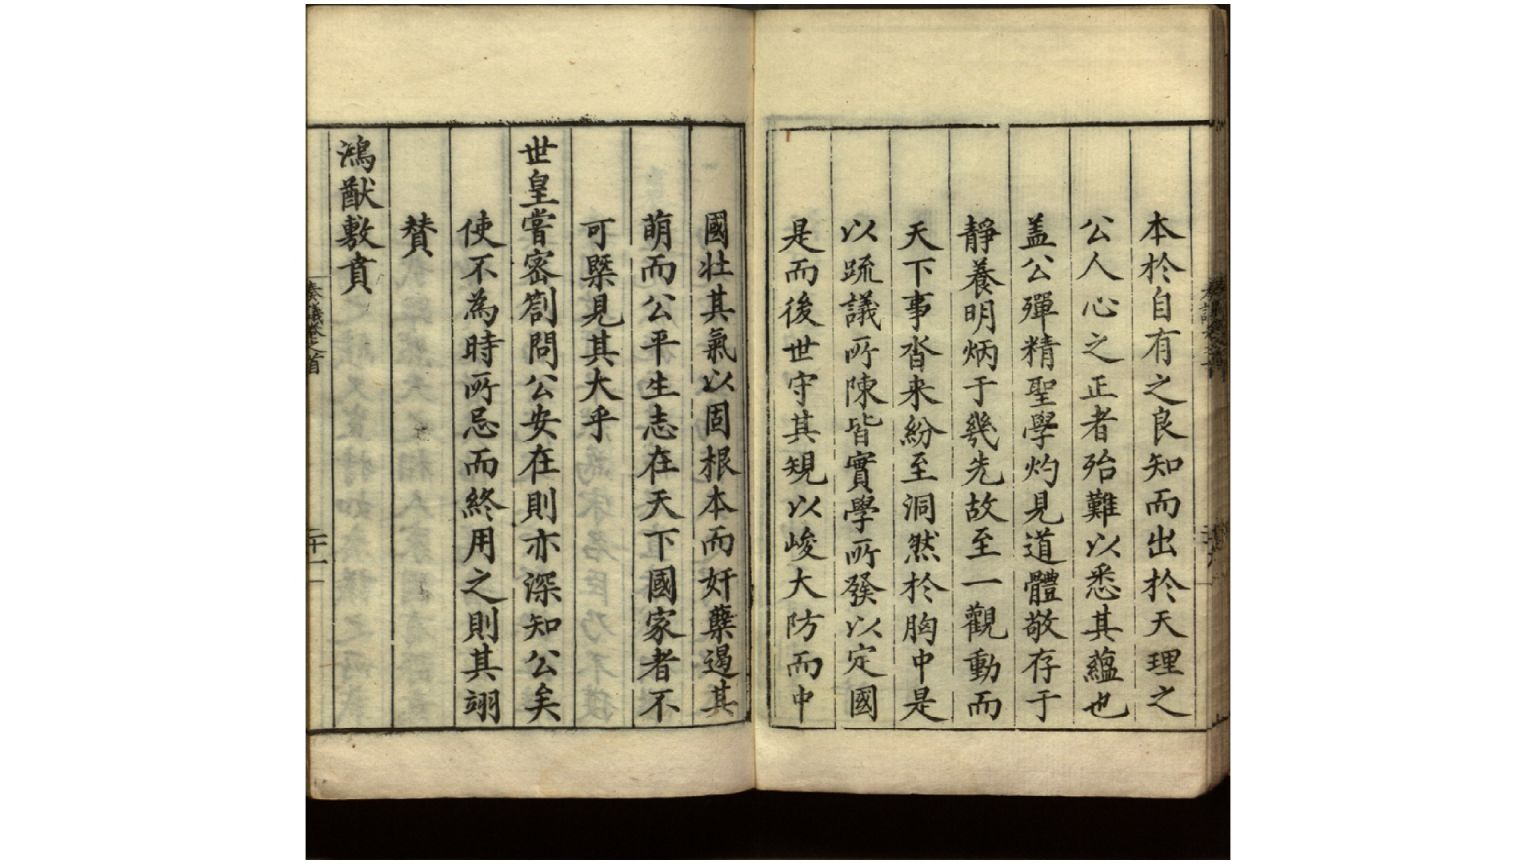 本於自有之良知而出於天理之
公人心之正者殆難以悉其蘊也
盖公彈精聖學灼見道體敬存于
靜養明炳于幾先故至一觀動而
天下事沓来紛至洞然於胸中是
以疏議所陳皆實學所發以定國
是而後世守其䂓以峻大防而中
國壮其氣以固根本而奸櫱遏其
萌而公平生志在天下國家者不
可槩見其大乎
世皇嘗密劄問公安在則亦深知公矣
使不為時所忌而終用之則其翊
賛
鴻猷敷賁
奏議卷之首
二十一